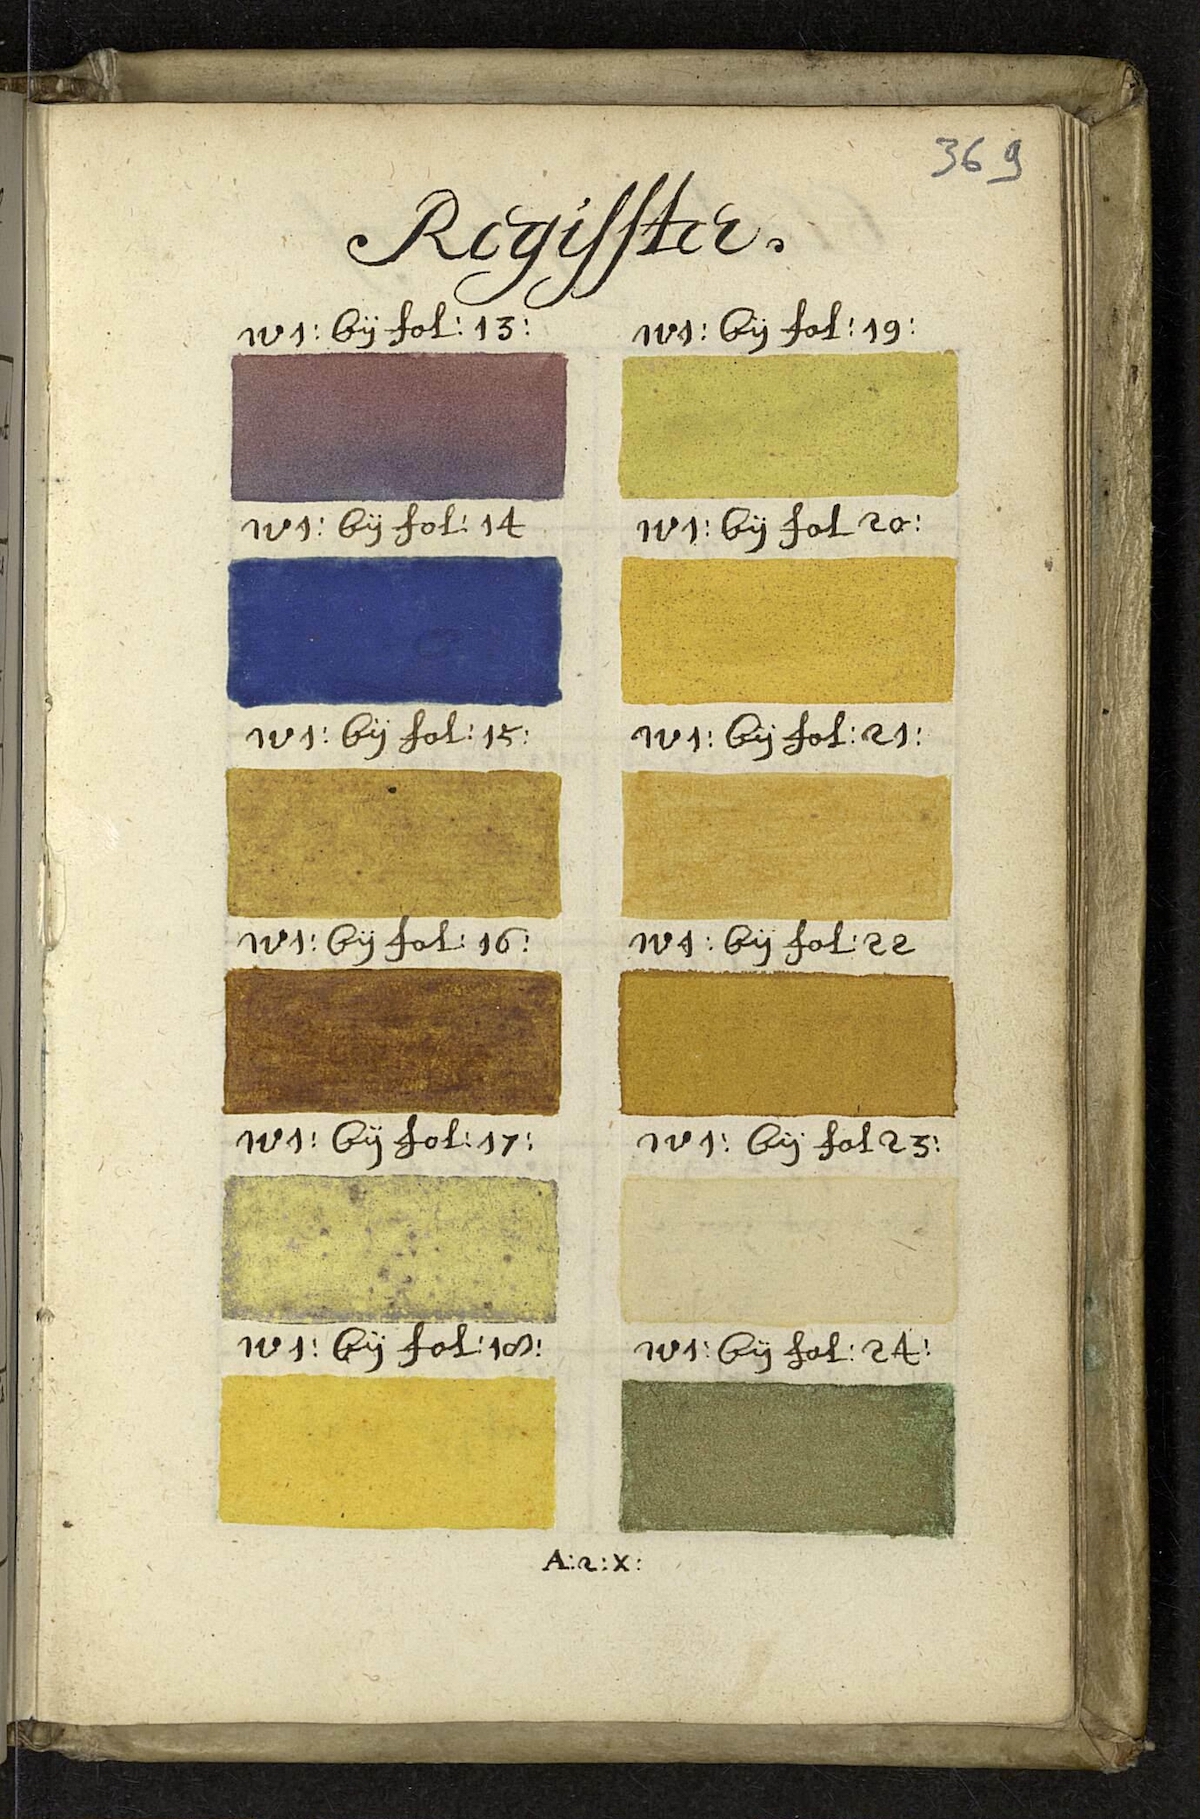 369
Regisster.
N 1: bÿ fol: 13:
N 1: bÿ fol: 14
N 1: bÿ fol: 15:
N 1: bÿ fol: 16:
N 1: bÿ fol: 17:
N 1: bÿ fol: 18:
N 1: bÿ fol: 19:
N 1: bÿ fol 20:
N 1: bÿ fol: 21:
N 1: bÿ fol: 22
N 1: bÿ fol 23:
N 1: bÿ fol: 24:
A:2:X: